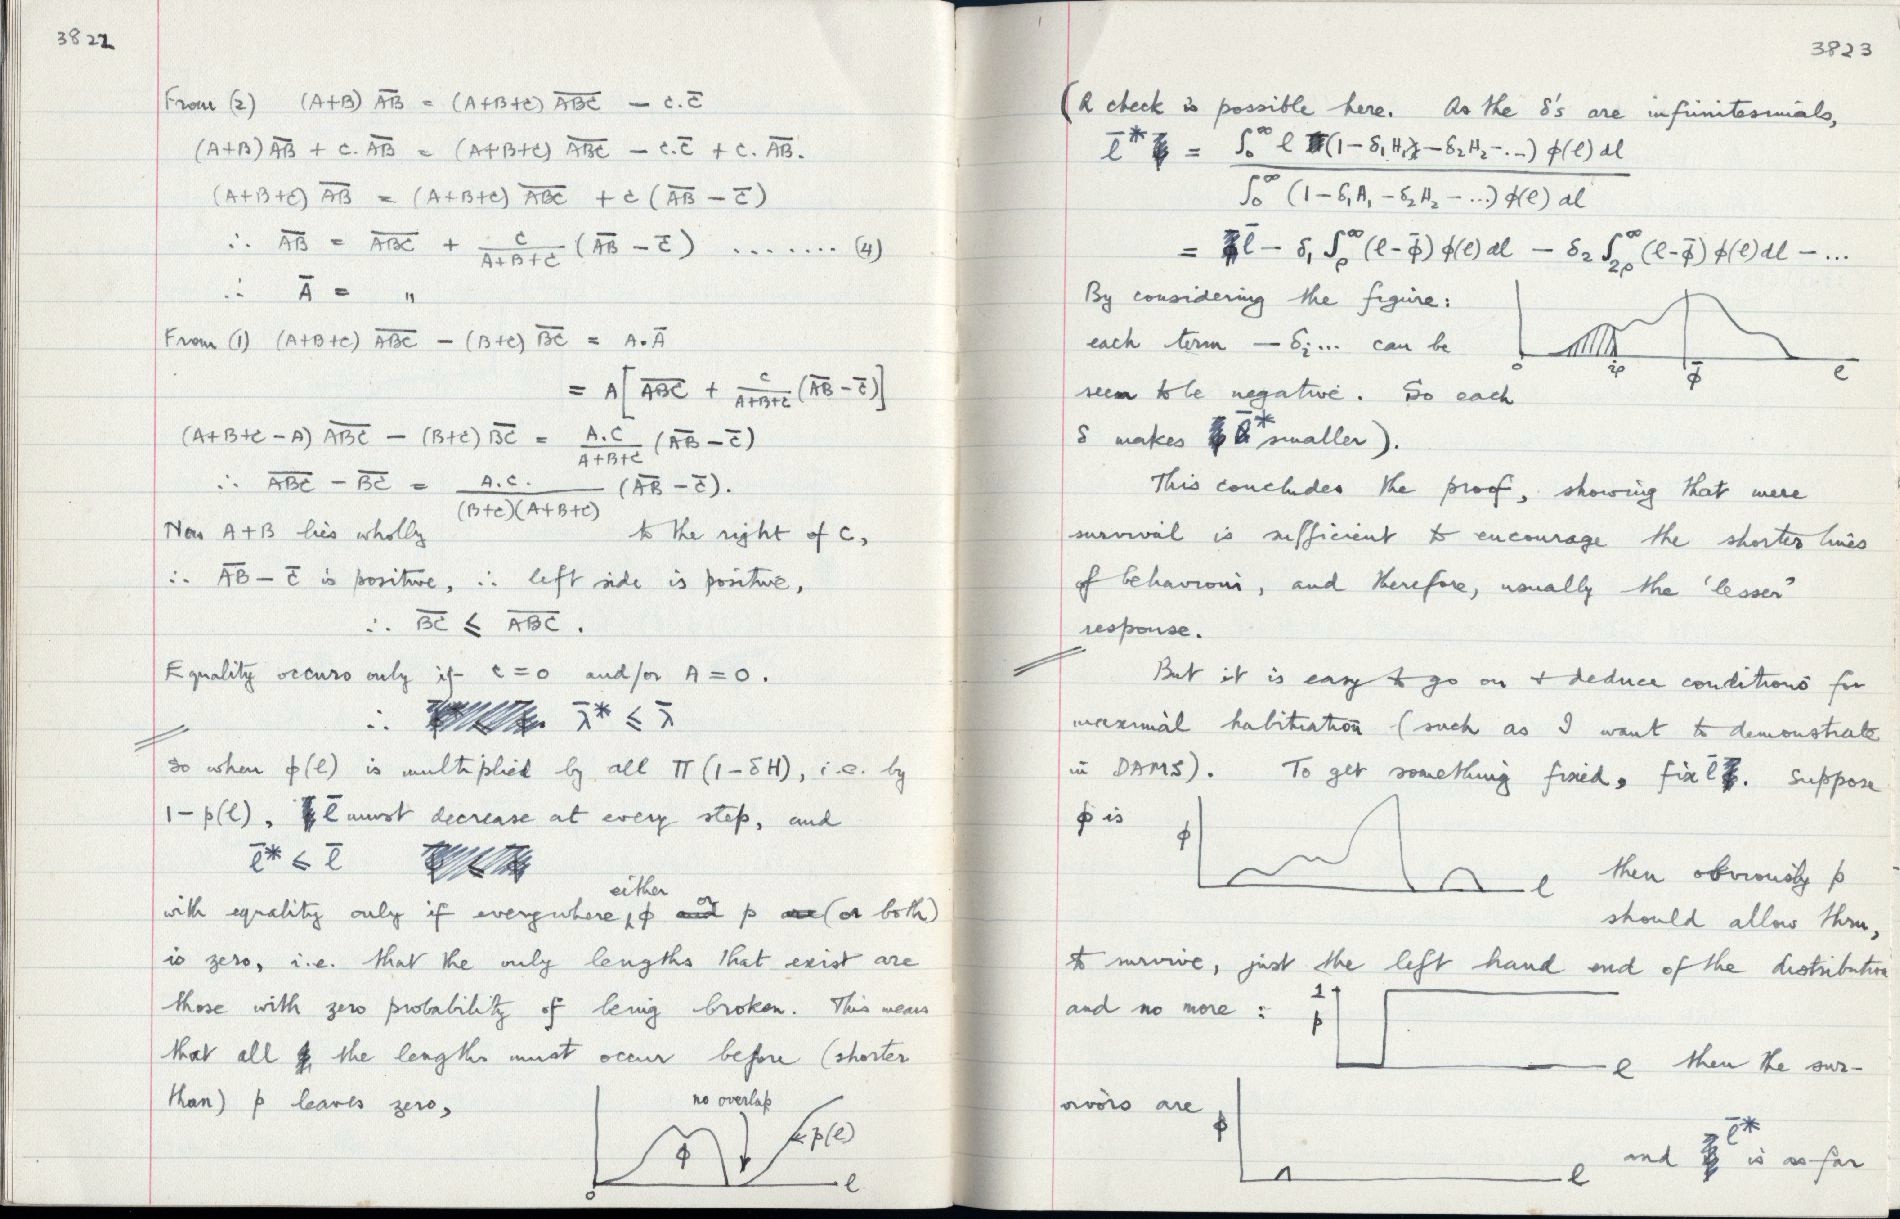 3822
From (2) (A+B) A̅B̅ = (A+B+C) A̅B̅C̅ − C.C̅
(A+B) A̅B̅ + C.A̅B̅ = (A+B+C) A̅B̅C̅ − C.C̅ + C.A̅B̅.
(A+B+C) A̅B̅ = (A+B+C) A̅B̅C̅ + C (A̅B̅ − C̅)
∴ A̅B̅ = A̅B̅C̅ + C/(A+B+C) (A̅B̅ − C̅) ........ (4)
∴ A̅ = "
From (1) (A+B+C) A̅B̅C̅ − (B+C) B̅C̅ = A.A̅
= A[A̅B̅C̅ + C/(A+B+C) (A̅B̅ − C̅)]
(A+B+C−A) A̅B̅C̅ − (B+C) B̅C̅ = A.C/(A+B+C) (A̅B̅ − C̅)
∴ A̅B̅C̅ − B̅C̅ = A.C./((B+C)(A+B+C)) (A̅B̅ − C̅).
Now A+B lies wholly to the right of C,
∴ A̅B̅ − C̅ is positive, ∴ left side is positive,
∴ B̅C̅ ≤ A̅B̅C̅.
Equality occurs only if C=0 and/or A=0.
∴ λ̅* ≤ λ̅
So when ϕ(l) is multiplied by all Π(1−δH), i.e. by
1−p(l), l̅ must decrease at every step, and
l̅* ≤ l̅
with equality only if everywhere, either ϕ or p (or both)
is zero, i.e. that the only lengths that exist are
those with zero probability of being broken. This means
that all the lengths must occur before (shorter
than) p leaves zero,
no overlap
ϕ
p(l)
0
l
3823
(A check is possible here. As the δ's are infinitesimals,
l̅* = ∫₀^∞ l (1−δ₁H₁−δ₂H₂−...) ϕ(l) dl
∫₀^∞ (1−δ₁H₁−δ₂H₂−...) ϕ(l) dl
= l̅ − δ₁ ∫ρ^∞ (l−ϕ̅) ϕ(l) dl − δ₂ ∫2ρ^∞ (l−ϕ̅) ϕ(l) dl − ...
By considering the figure:
each term −δᵢ... can be
0 iρ ϕ̅ l
seen to be negative. So each
δ makes l̅* smaller).
This concludes the proof, showing that mere
survival is sufficient to encourage the shorter lines
of behaviour, and therefore, usually the 'lesser'
response.
But it is easy to go on + deduce conditions for
maximal habituation (such as I want to demonstrate
in DAMS). To get something fixed, fix l̅. Suppose
ϕ is
ϕ
l
then obviously p
should allow thru,
to survive, just the left hand end of the distribution
and no more:
1
p
l
then the sur-
vivors are
ϕ
l
and l̅* is as far